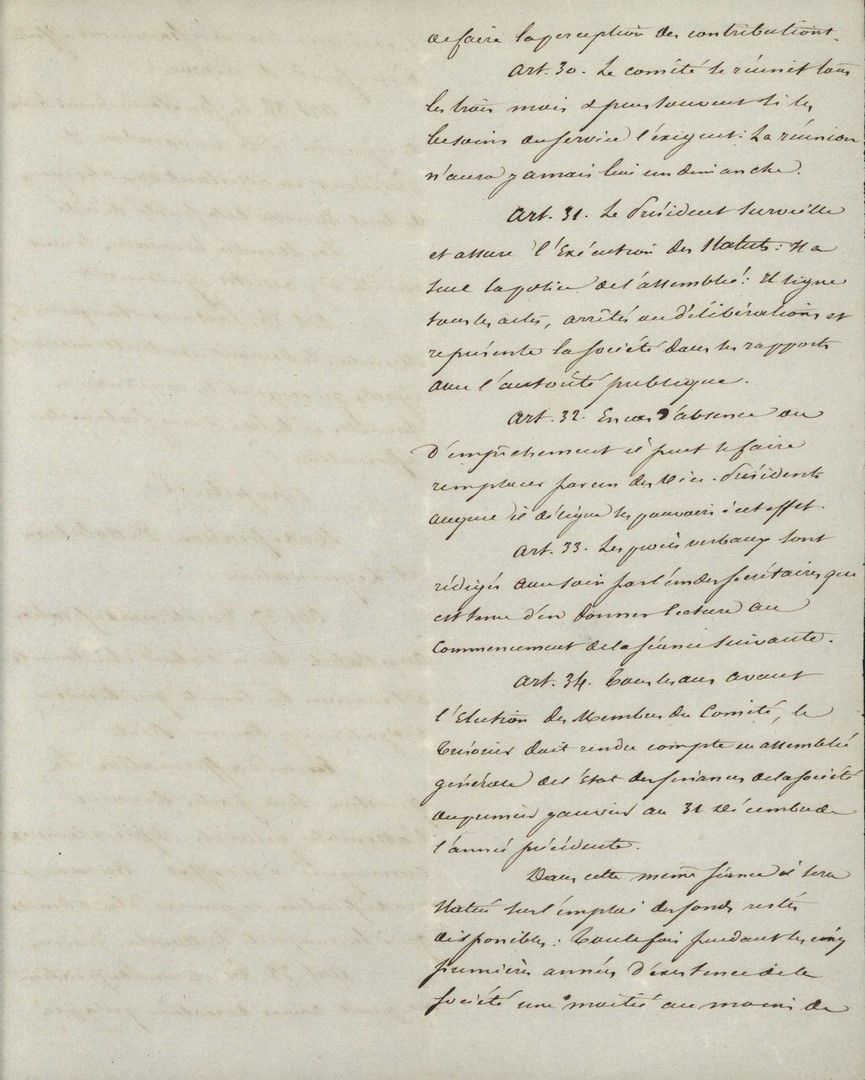 de faire la perception des contributions.
Art. 30. Le comité se réunit tous
les trois mois & plus souvent si les
besoins du service l'éxigent: La réunion
n'aura jamais lieu un dimanche.
Art. 31. Le Président surveille
et assure l'Exécution des Statuts: Il a
seul la police de l'assemblée: Il signe
tous les actes, arrêtés ou délibérations et
représente la société dans ses rapports
avec l'autorité publique.
Art. 32. En cas d'absence ou
d'empêchement il peut se faire
remplacer par un des Vice-Présidents
auquel il délègue ses pouvoirs à cet effet.
Art. 33. Les procès verbaux sont
rédigés avec soin par l'un des secrétaires qui
est tenu d'en donner lecture au
commencement de la séance suivante.
Art. 34. Tous les ans avant
l'Election des Membres du Comité, le
Trésorier doit rendre compte en assemblée
générale de l'Etat des finances de la société
du premier janvier au 31 Décembre de
l'année précédente.
Dans cette même séance il sera
statué sur l'emploi des fonds restés
disponibles: Toutefois pendant les cinq
premières années d'existence de la
société une moitié au moins de